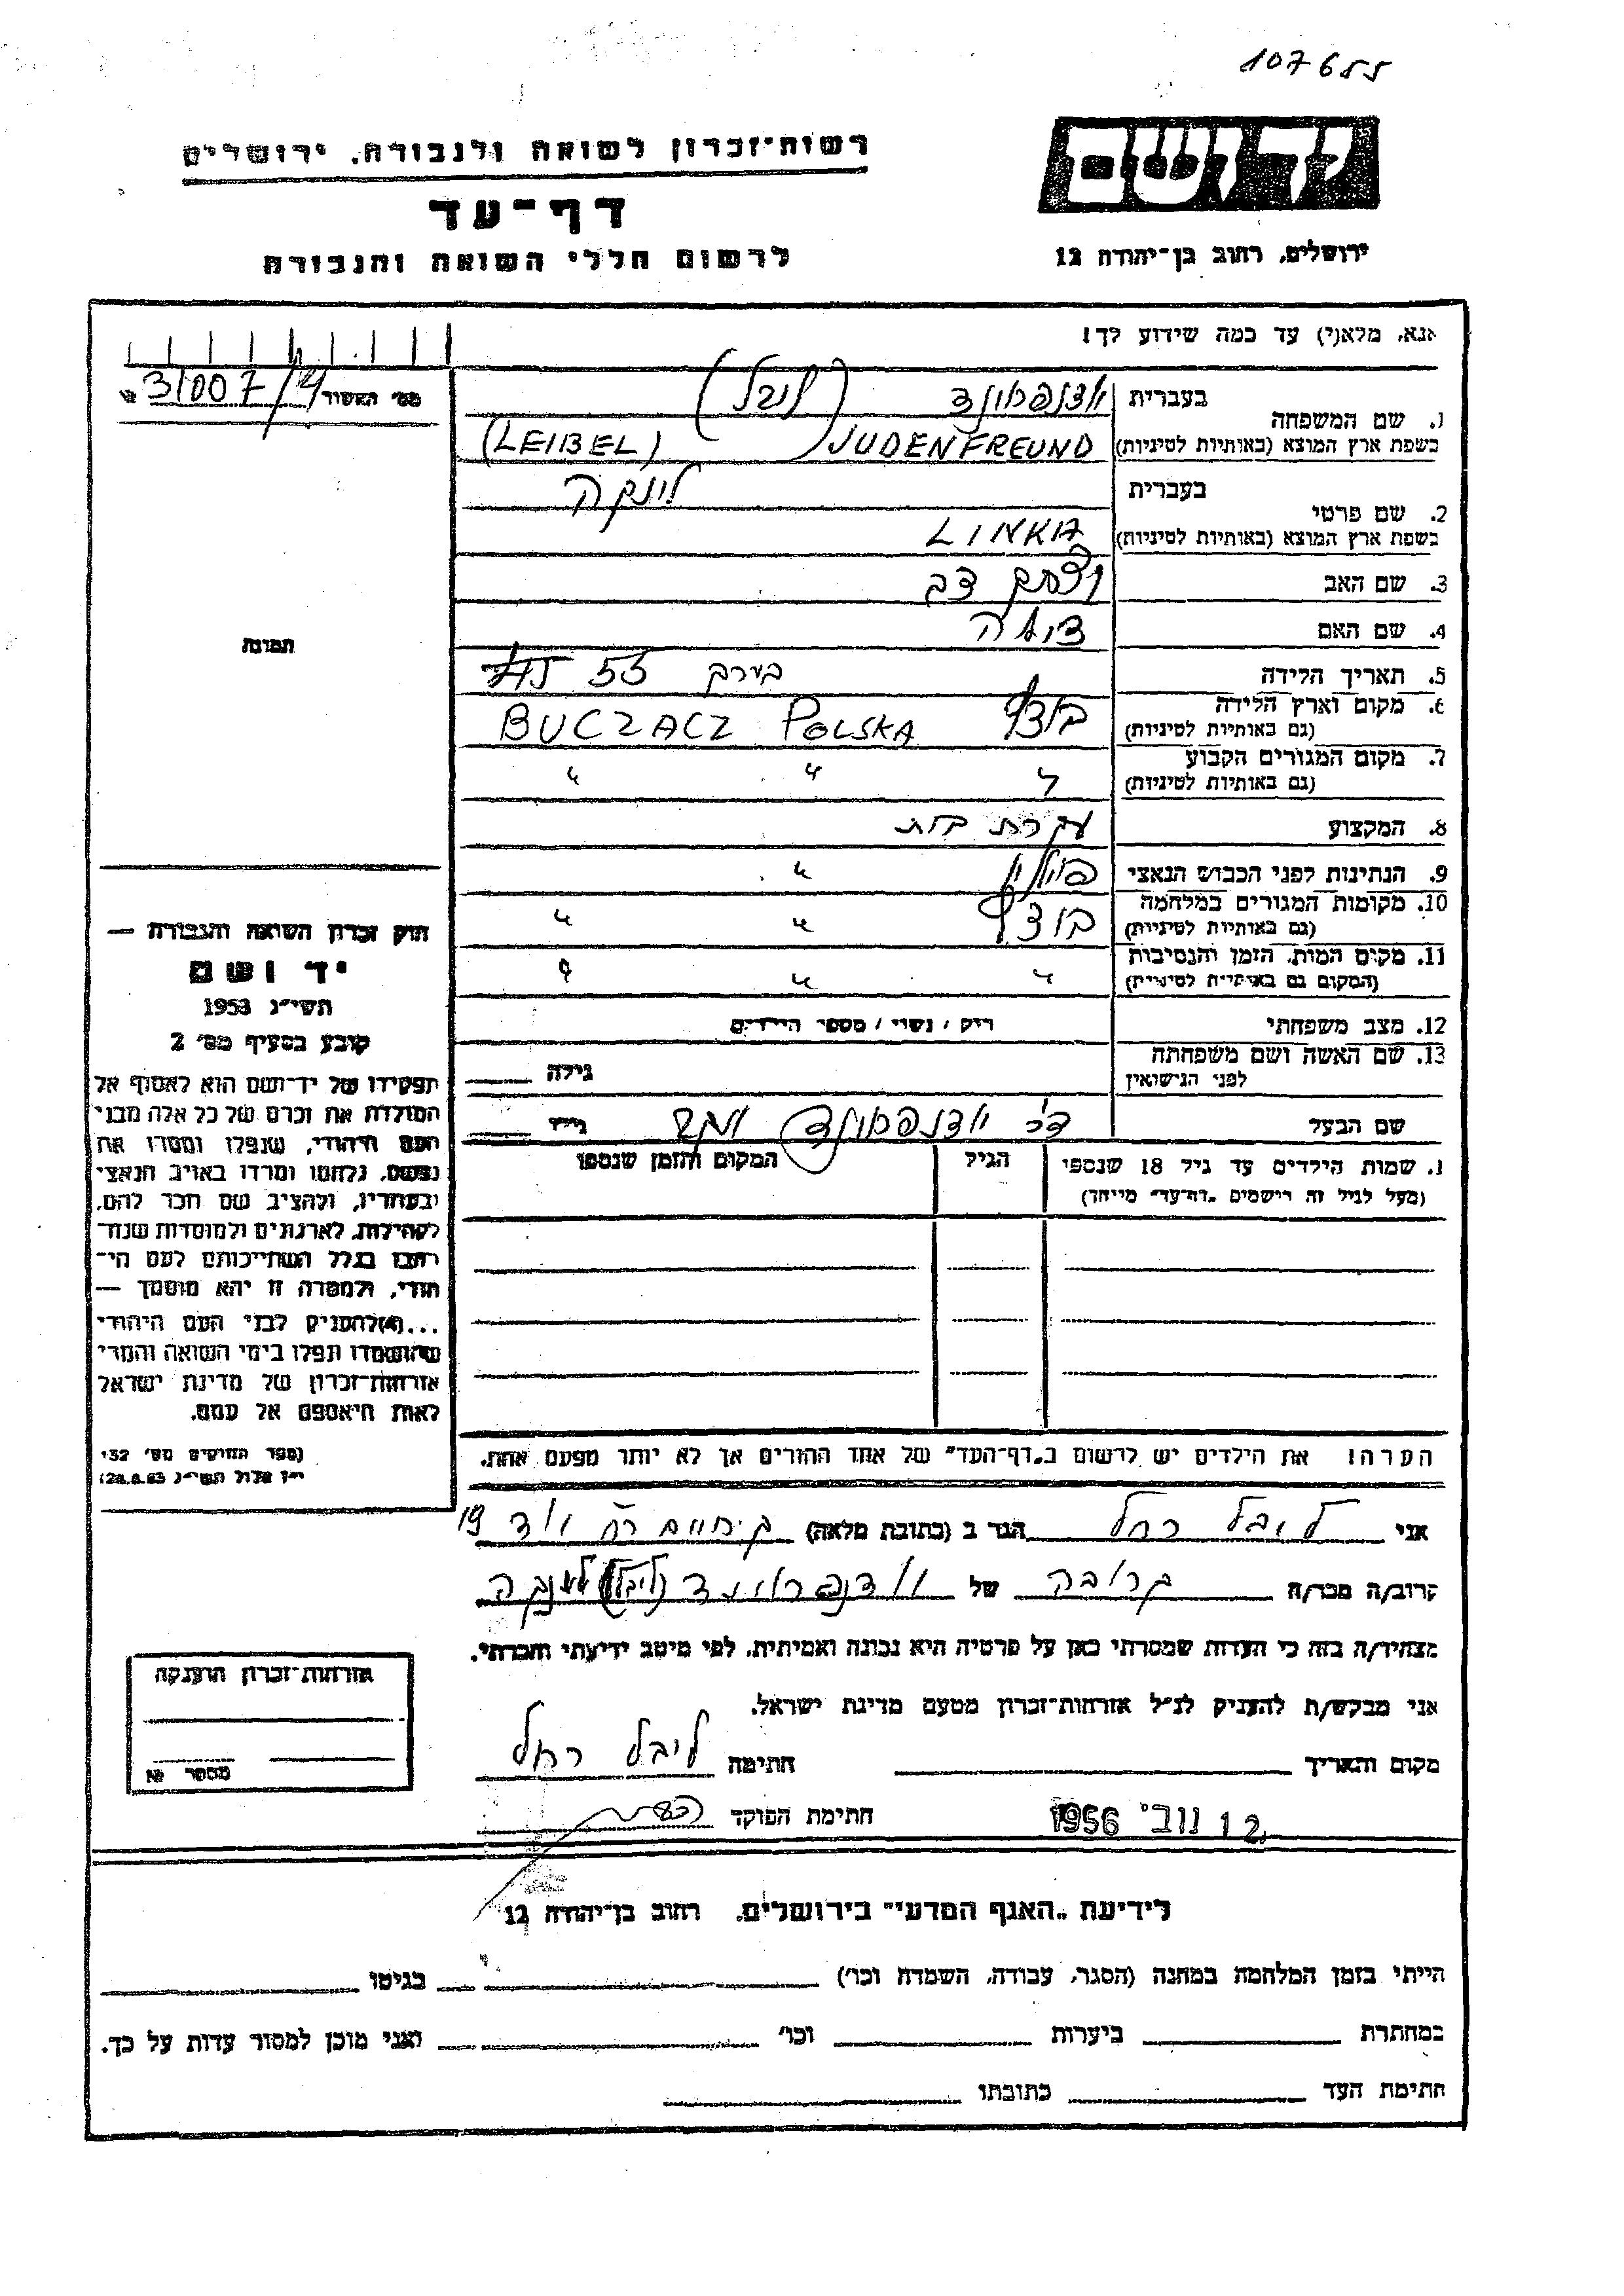 107655
יד ושם
רשות־זכרון לשואה ולגבורה, ירושלים
דף־עד
לרשום חללי השואה והגבורה
ירושלים, רחוב בן־יהודה 12
אנא, מלא(י) עד כמה שידוע לך!
מס' האשור 31007/4 №
1. שם המשפחה
בעברית יודנפרוינד (ליבל)
בשפת ארץ המוצא (באותיות לטיניות) JUDENFREUND (LEIBEL)
2. שם פרטי
בעברית לינקה
בשפת ארץ המוצא (באותיות לטיניות) LINKA
3. שם האב יצחק דב
4. שם האם
5. תאריך הלידה בערך 55
6. מקום וארץ הלידה
(גם באותיות לטיניות) BUCZACZ POLSKA
7. מקום המגורים הקבוע
(גם באותיות לטיניות) " " "
8. המקצוע עקרת בית
9. הנתינות לפני הכבוש הנאצי פולין "
10. מקומות המגורים במלחמה
(גם באותיות לטיניות) " "
11. מקום המות, הזמן והנסיבות
(המקום גם באותיות לטיניות) " " "
12. מצב משפחתי רוק / נשוי / מספר הילדים
13. שם האשה ושם משפחתה
לפני הנישואין גילה
שם הבעל יודנפרוינד גילו
1. שמות הילדים עד גיל 18 שנספו הגיל המקום והזמן שנספו
(מעל לגיל זה רישמים „דף־עד" מייחד)
הערה! את הילדים יש לרשום ב„דף־העד" של אחד ההורים אך לא יותר מפעם אחת.
תמונה
חוק זכרון השואה והגבורה —
יד ושם
תשי"ג 1953
קובע בסעיף מס' 2
תפקידו של יד־ושם הוא לאסוף אל
המולדת את זכרם של כל אלה מבני
העם היהודי, שנפלו ומסרו את
נפשם, נלחמו ומרדו באויב הנאצי
ובעוזריו, ולהציב שם וזכר להם,
לקהילות, לארגונים ולמוסדות שנח־
רבו בגלל השתייכותם לעם הי־
הודי, ולמטרה זו יהא מוסמך —
...(ד)להעניק לבני העם היהודי
שהושמדו ונפלו בימי השואה והמרי
אזרחות־זכרון של מדינת ישראל
לאות היאספם אל עמם.
(ספר החוקים מס' 132
י"ז אלול תשי"ג 28.8.53)
אני ליבל רחל הגר ב (כתובת מלאה) ק. חיים רח' 19
קרוב/ה מכר/ה קרובה של יודנפרוינד (ליבל) לינקה
מצהיר/ה בזה כי העדות שמסרתי כאן על פרטיה היא נכונה ואמיתית, לפי מיטב ידיעתי והכרתי.
אני מבקש/ת להעניק לנ"ל אזרחות־זכרון מטעם מדינת ישראל.
מקום ותאריך חתימה ליבל רחל
12 נוב' 1956 חתימת הפוקד
אזרחות־זכרון הוענקה
מספר №
לידיעת „האגף המדעי" בירושלים, רחוב בן־יהודה 12
הייתי בזמן המלחמה במחנה (הסגר, עבודה, השמדה וכו') בגיטו
במחתרת ביערות וכו' ואני מוכן למסור עדות על כך.
חתימת העד כתובתו